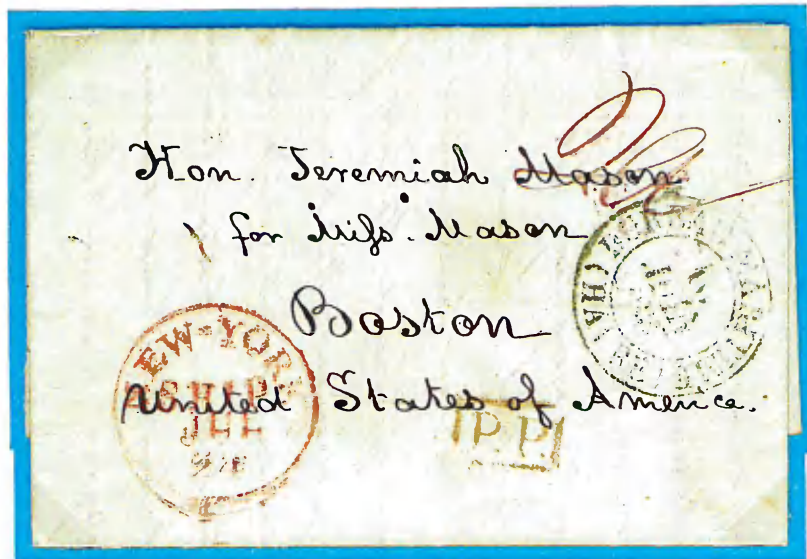 Hon. Jeremiah Mason
for Miſs. Mason
Boston
United States of America.
NEW-YORK
SHIP
JUL
P.P.